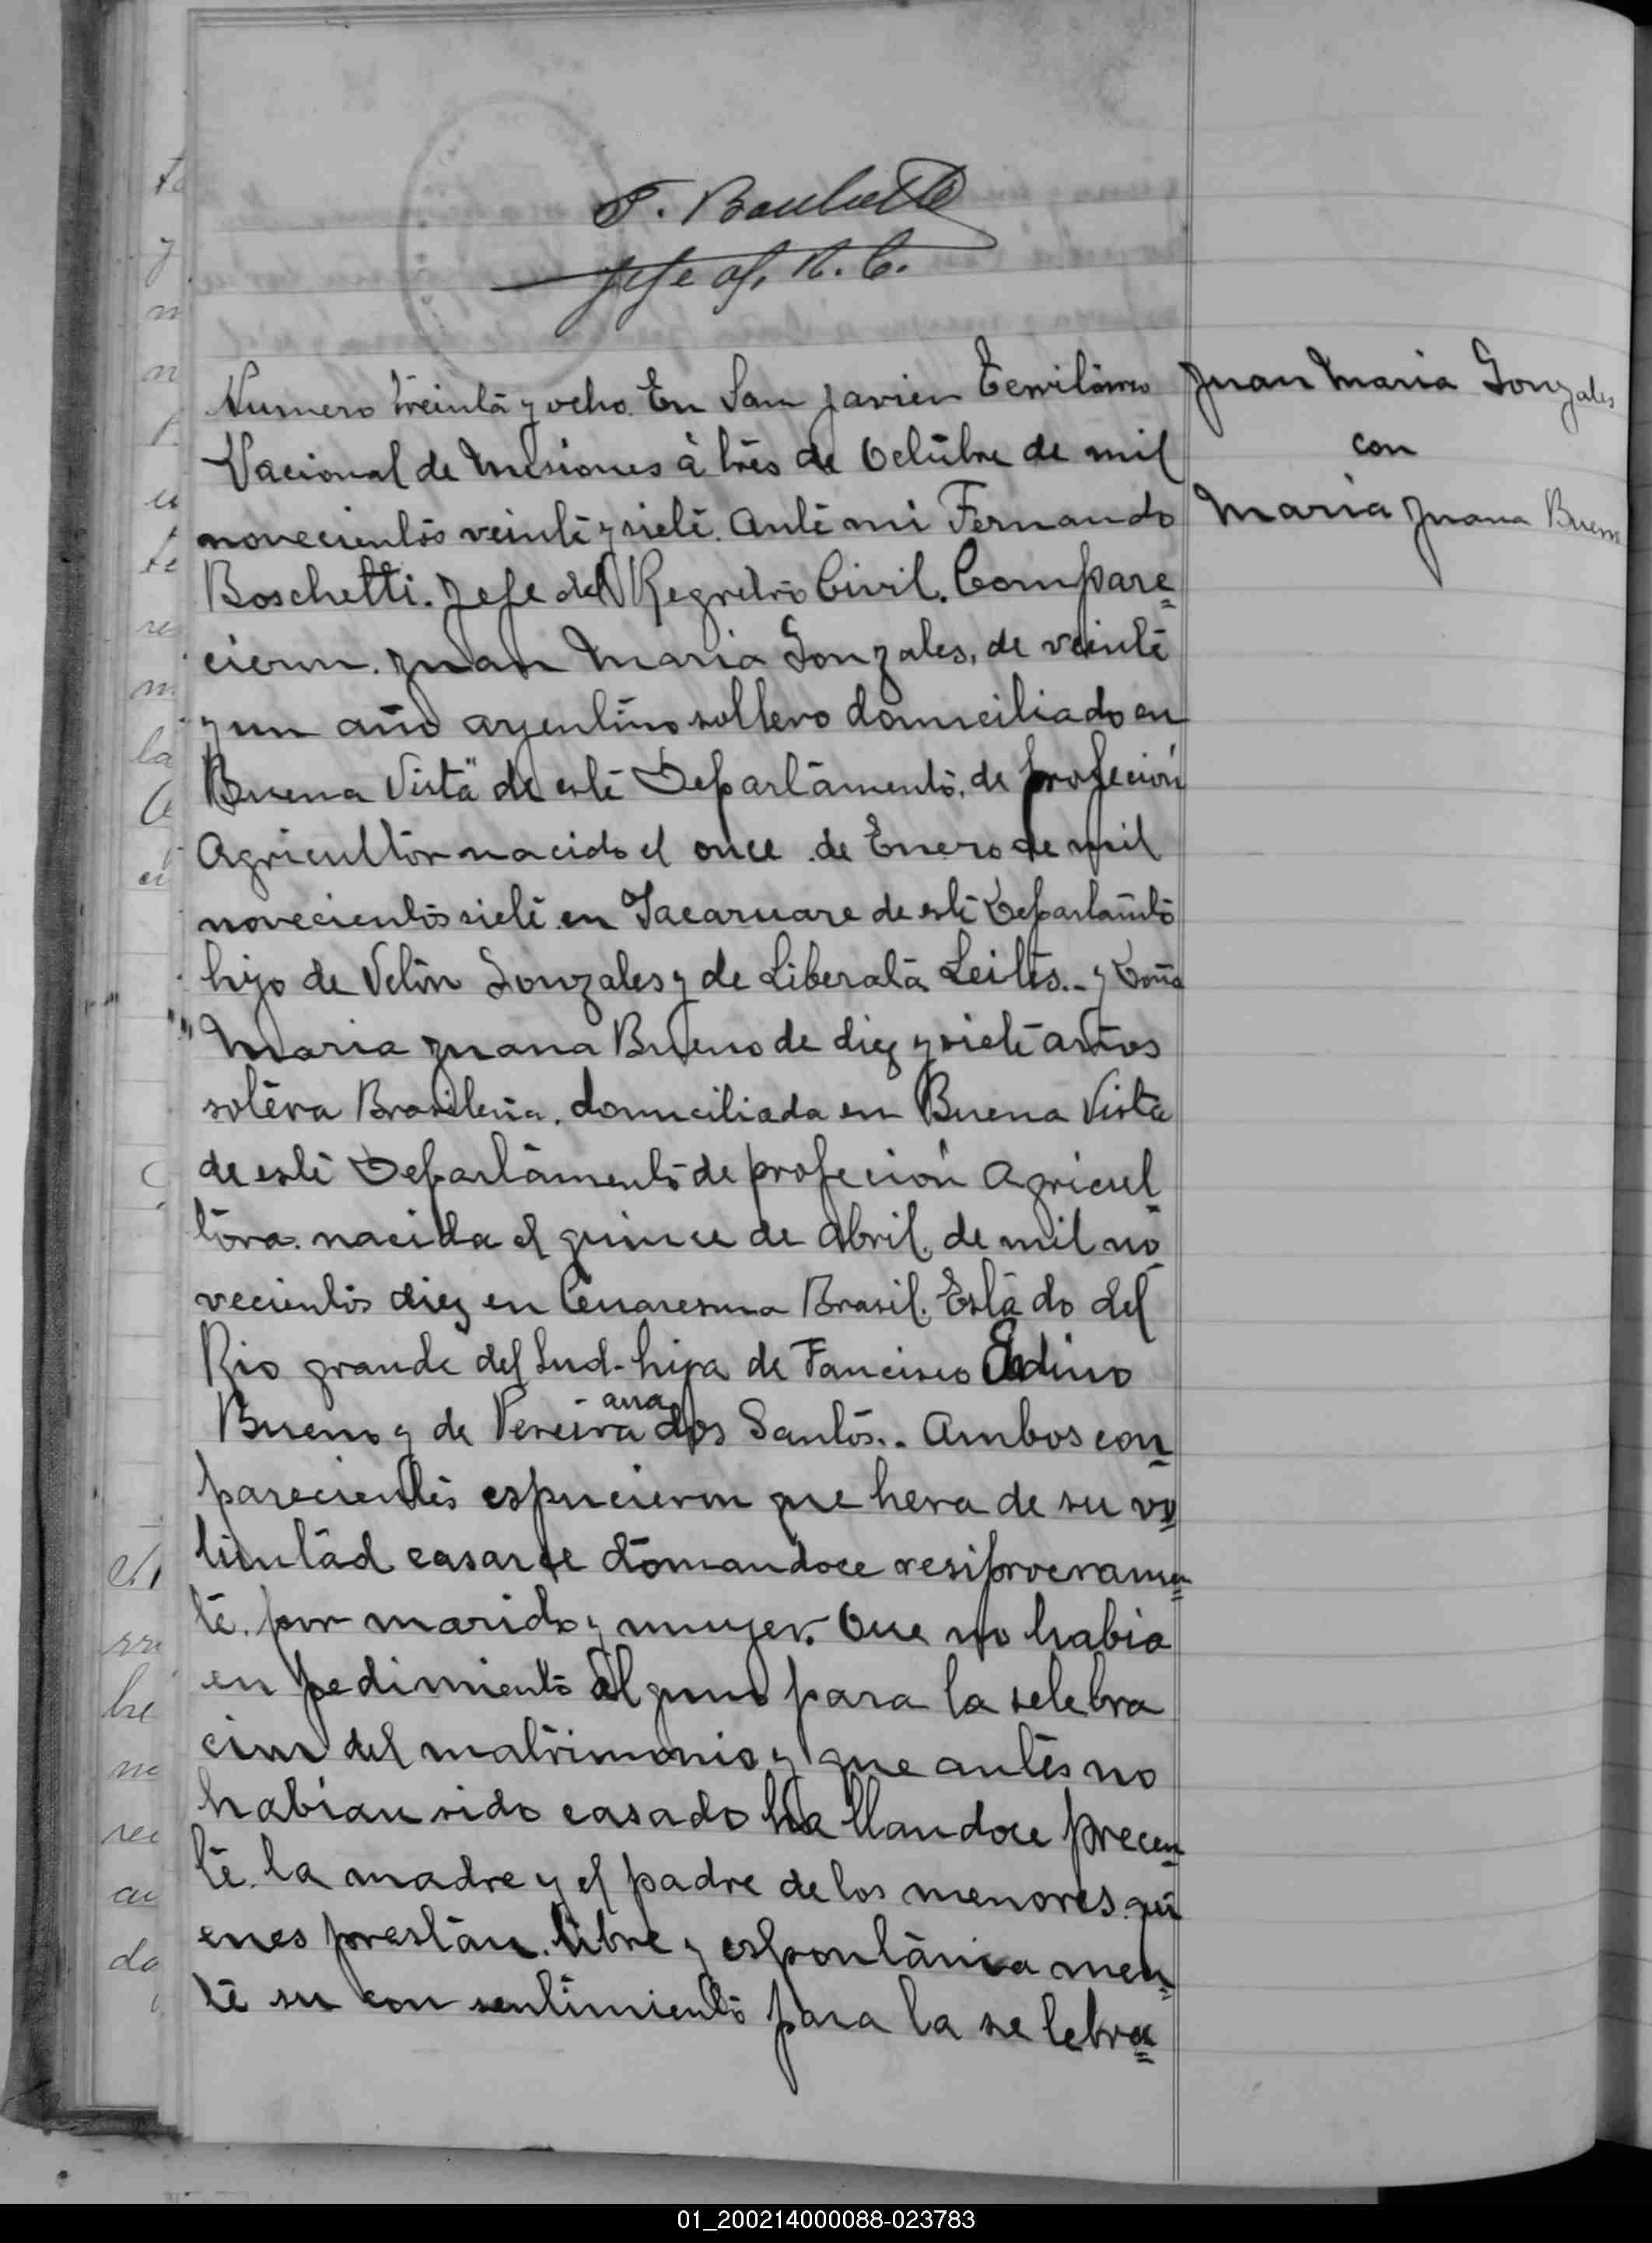 F. Boschetti
Jefe of. R. C.
Numero treinta y ocho. En San Javier Territorio
Nacional de Misiones à tres de Octubre de mil
novecientos veinte y siete. Ante mi Fernando
Boschetti. Jefe del Registro Civil. Compare=
cieron. Juan Maria Gonzales, de veinte
y un año argentino soltero domiciliado en
Buena Vista" de este Departamento, de profecion
Agricultor nacido el once de Enero de mil
novecientos siete en Tacaruare de este Departamto
hijo de Velon Gonzales y de Liberata Leites.. y Doña
"" Maria Juana Bueno de diez y siete años
soltera Brasileña. domiciliada en Buena Vista
de este Departamento de profecion Agricul=
tora. nacida el quince de Abril de mil no
vecientos diez en Cuaresma Brasil. Estado del
Rio grande del Sud- hija de Fancisco Adino
Bueno y de Pereira - ana dos Santos.. Ambos con=
parecientes espucieron que hera de su vo
luntad casarce tomandoce resiprocramen=
te. por marido y mujer. Que no habia
en pedimiento alguno para la selebra
cion del matrimonio y que antes no
habian sido casado ha llandoce precen=
te. la madre y el padre de los menores. qui
enes prestan. libre y espontanica men=
te su con sentimiento para la se lebra=
Juan Maria Gonzales
con
Maria Juana Bueno
01_200214000088-023783